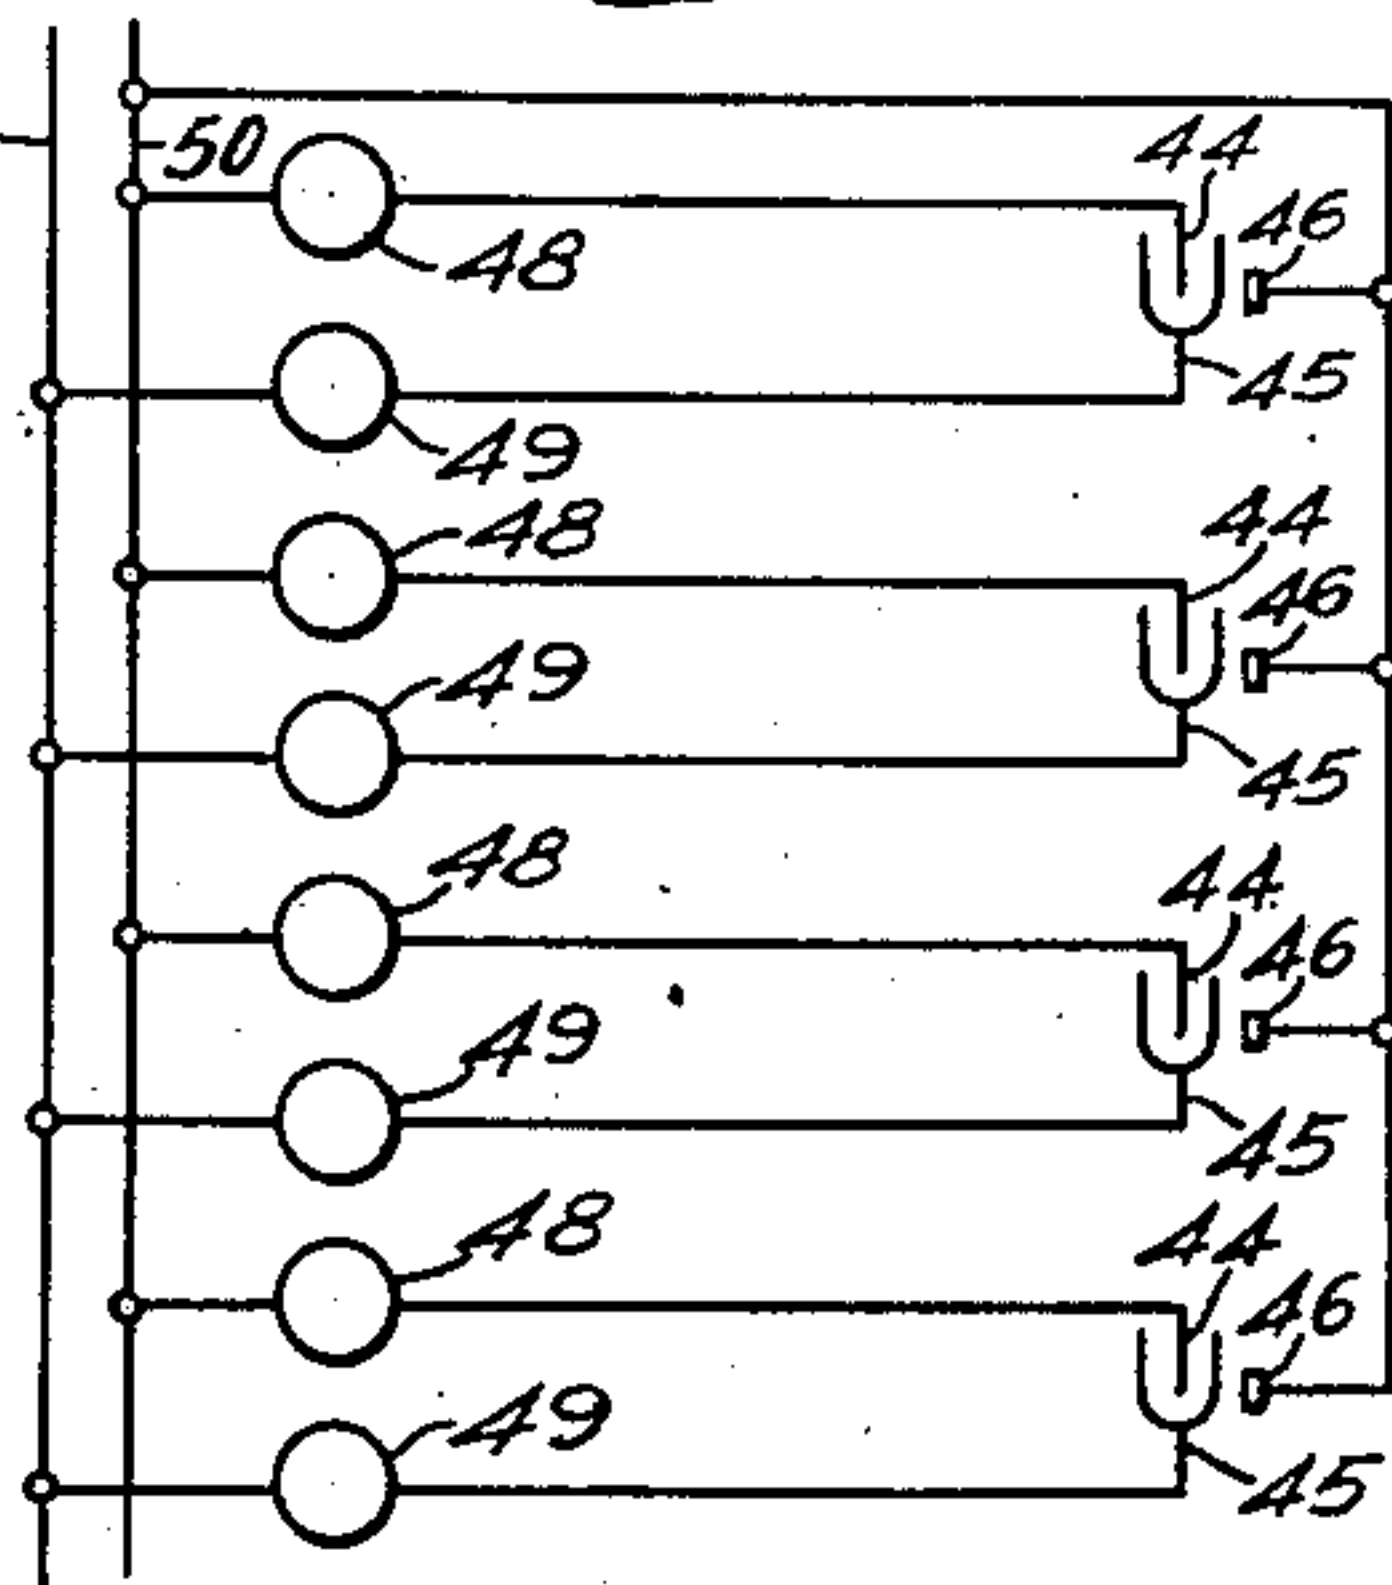 50
44
46
48
45
49
44
48
46
49
45
48
44
46
49
45
48
44
46
49
45